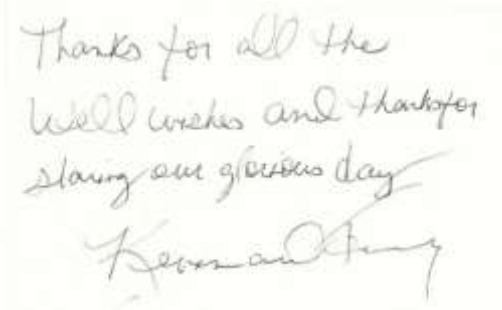 Thanks for all the
Well wishes and thanks for
sharing our glorious day